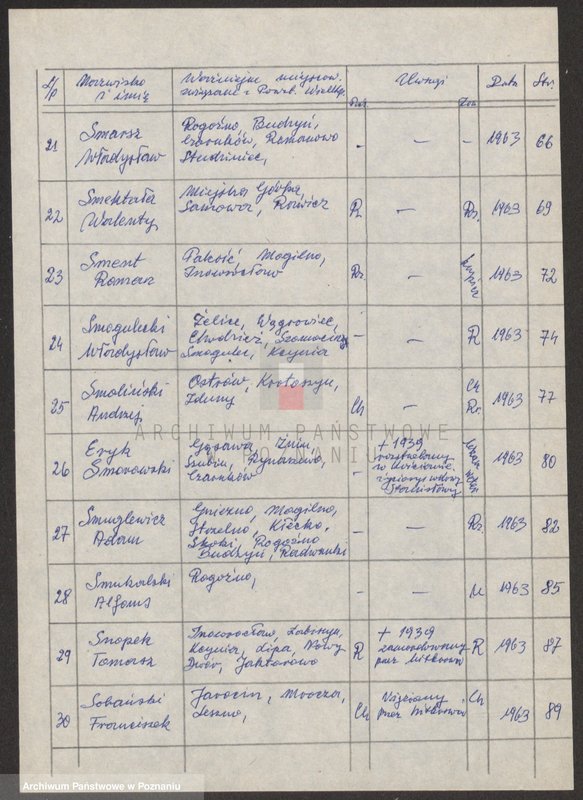 L/p Nazwisko i imię Ważniejsze miejscow. związane z Powst. Wielkp. Uwagi Data Str.
21 Smarsz Władysław Rogoźno, Budzyń, Czarnków, Romanowo Studziniec, - - - 1963 66
22 Smektała Walenty Miejska Górka, Sarnowa, Rawicz R - Rz. 1963 69
23 Sment Roman Pakość, Mogilno, Inowrocław Rz - 1963 72
24 Smogulecki Władysław Żelice, Wągrowiec, Chodzież, Szamocin, Smogulec, Kcynia - - R 1963 74
25 Smoliński Andrzej Ostrów, Krotoszyn, Zduny Ch - Ch Rz. 1963 77
26 Eryk Smorawski Gąsawa, Żnin, Szubin, Rynarzewo, Czarnków - + 1939 rozstrzelany w 1963 80
27 Smuglewicz Adam Gniezno, Mogilno, Strzelno, Kłecko, Skoki, Rogoźno Budzyń, Radwanki - - Rz. 1963 82
28 Smukalski Alfons Rogoźno, - - M 1963 85
29 Snopek Tomasz Inowrocław, Łabiszyn, Kcynia, Lipa, Nowy Dwór, Jaktorowo R + 1939 zamordowany przez hitlerowców R 1963 87
30 Sobański Franciszek Jarocin, Mrocza, Leszno, Ch Więziony przez hitlerowców Ch 1963 89
ARCHIWUM PAŃSTWOWE
W POZNANIU
Archiwum Państwowe w Poznaniu